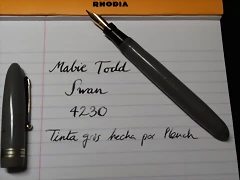 RHODIA
Mabie Todd
Swan
4230
Tinta gris hecha por Plouch